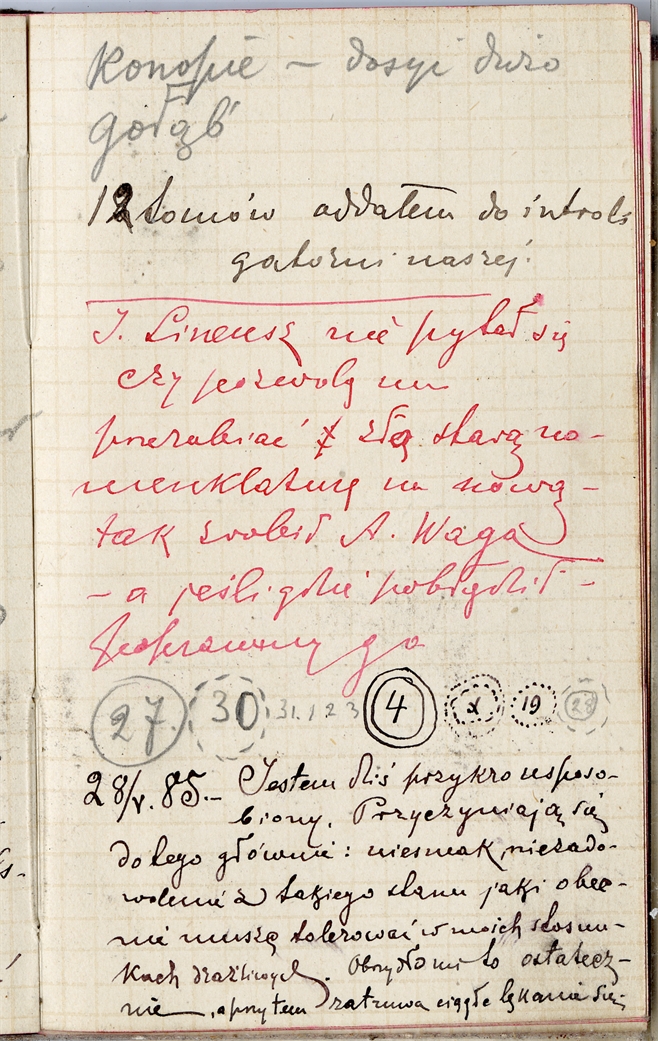 Konopie – dosyć dużo
gołąb'
12 tomów oddałem do introli
gatorni naszej.
J. Lineusz nie pytał się
czy pozwolą mu
przerabiać złą starą no-
menklaturę na nową –
tak zrobił A. Waga
– a jeśli gdzie pobłądził –
poprawmy go
27 30 31. 1 2 3 4 2 19 28
28/V. 85. – Jestem dziś przykro usposo-
biony. Przyczyniają się
do tego głównie: niesmak, niezado-
wolenie z takiego stanu jaki obec-
nie muszę tolerować w moich stosun-
kach drażliwych. Obrzydło mi to ostatecz-
nie –, a przytem zatruwa ciągłe lękanie się